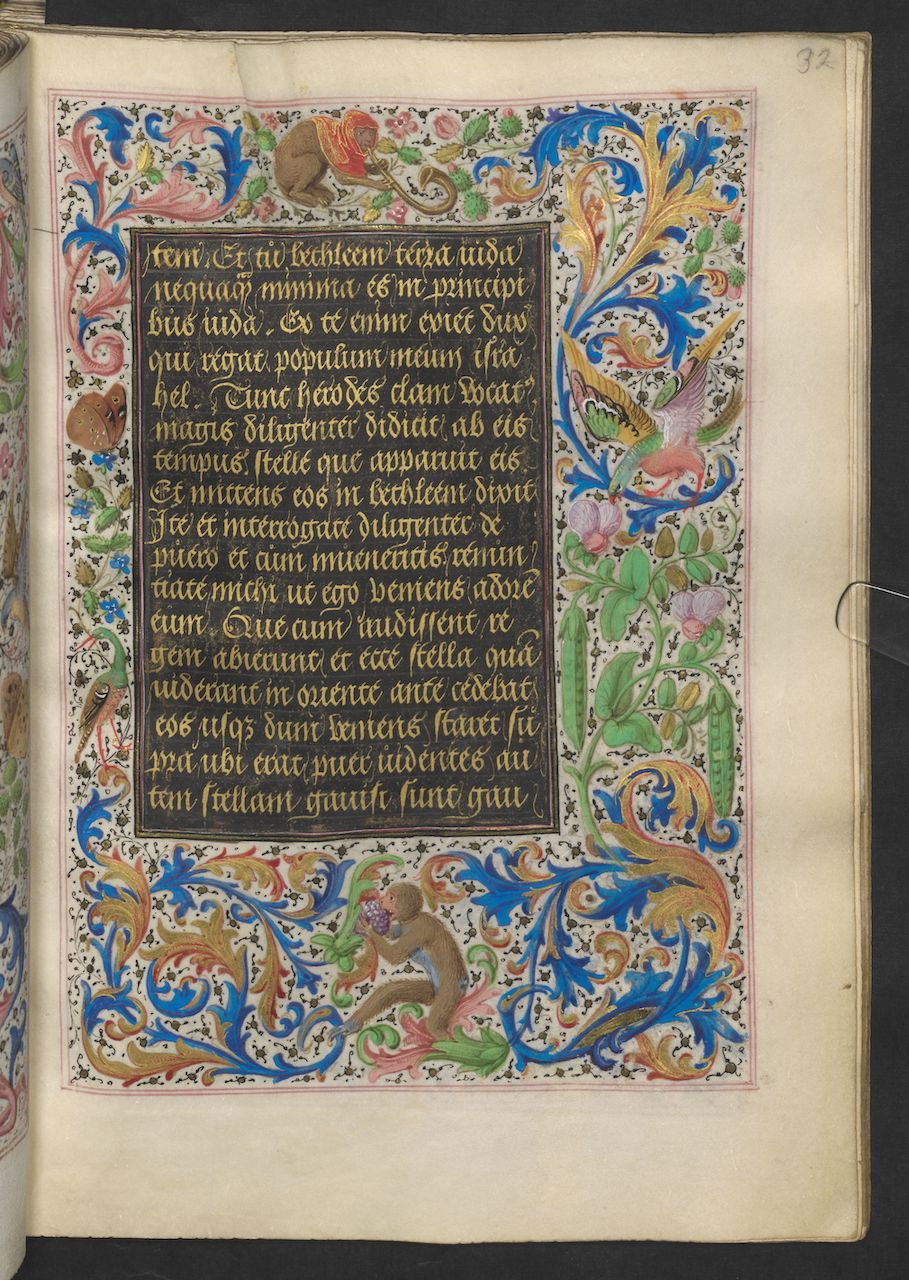 32
tem. Et tu bethleem terra iuda
nequaq̃ minima es in principi
bus iuda. Ex te enim exiet dux
qui regat populum meum isra
hel. Tunc herodes clam vocat᾽
magis diligenter didicit ab eis
tempus stelle que apparuit eis
Et mittens eos in bethleem dixit
Ite et interrogate diligenter de
puero et cum inueneritis renun
tiate michi ut ego veniens adorẽ
eum. Que cum audissent re
gem abierunt et ecce stella quã
uiderant in oriente antecẽdebat
eos usqꝫ dum veniens staret su
pra ubi erat puer uidentes au
tem stellam gauisi sunt gau